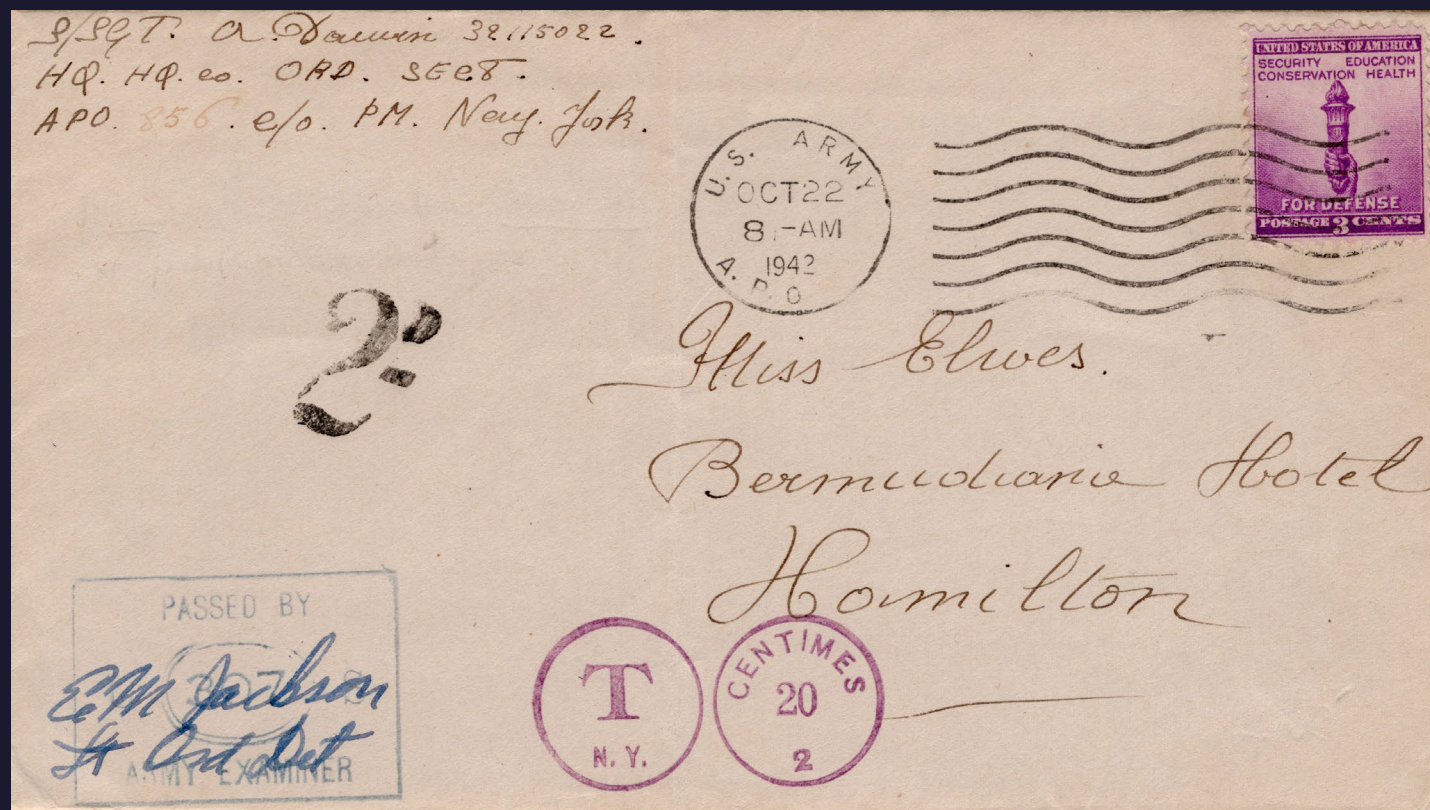 S/SGT. A. Dawson 32115022.
HQ. HQ. co. ORD. SECT.
APO. 856. c/o. PM. Ney. York.
UNITED STATES OF AMERICA
SECURITY EDUCATION
CONSERVATION HEALTH
FOR DEFENSE
POSTAGE 3 CENTS
U.S. ARMY
OCT 22
8 -AM
1942
A.P.O
2D
Miss Elwes.
Bermudiana Hotel
Hamilton
PASSED BY
ARMY EXAMINER
EM Jackson
Lt Ord Det
T
N.Y.
CENTIMES
20
2